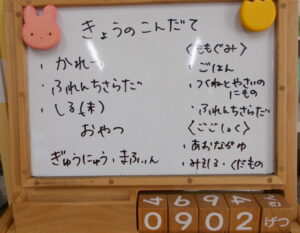 きょうのこんだて
・かれー
・ふれんちさらだ
・しる(末)
おやつ
ぎゅうにゅう・まふぃん
〈ももぐみ〉
・ごはん
・つくねとやさいの
にもの
・ふれんちさらだ
〈ごごしょく〉
・あおながゆ
・みそしる・くだもの
0902 げつ